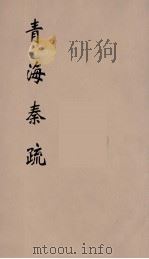 青海奏疏
www.mtoou.info